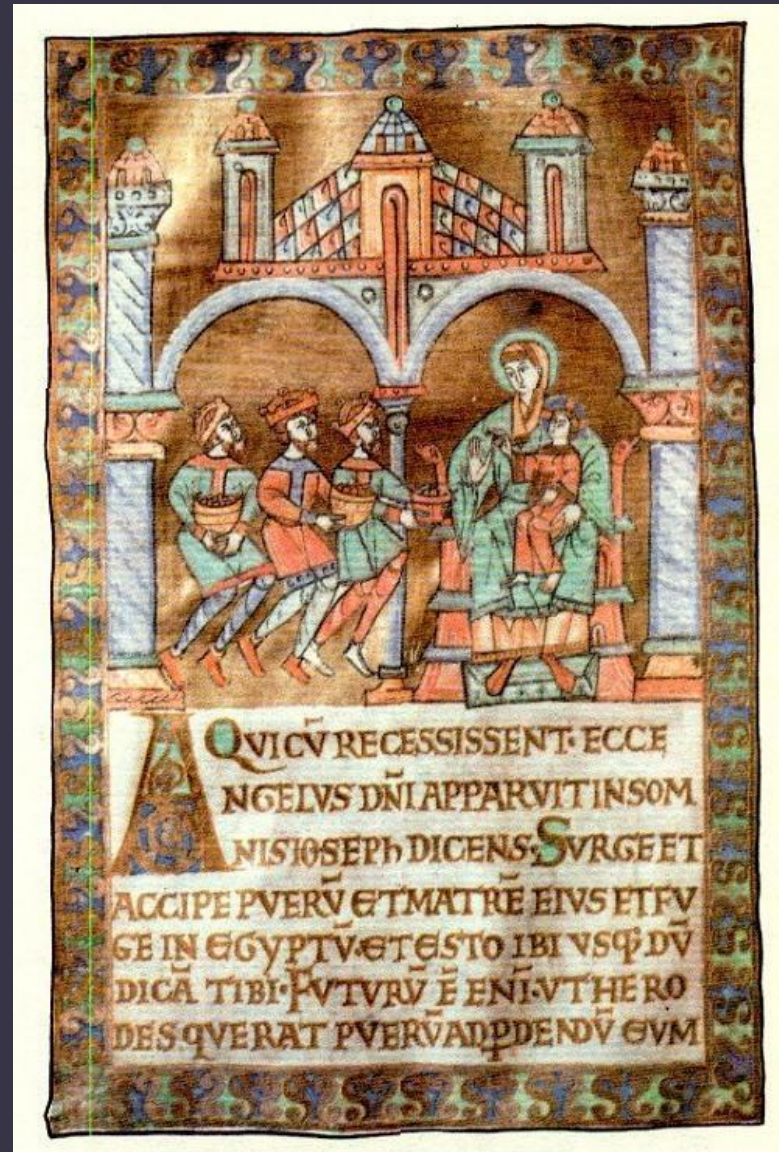 QVI CV̄ RECESSISSENT· ECCE
ANGELVS DN̄I APPARVIT IN SOM
NIS IOSEPh DICENS· SVRGE ET
ACCIPE PVERV̄ ET MATRĒ EIVS ET FV
GE IN EGYPTV̄· ET ESTO IBI VSꝖ DV̄
DICĀ TIBI· FVTVRV̄ Ē ENĪ· VT HERO
DES QVERAT PVERV̄ AD ꝐDENDV̄ EVM